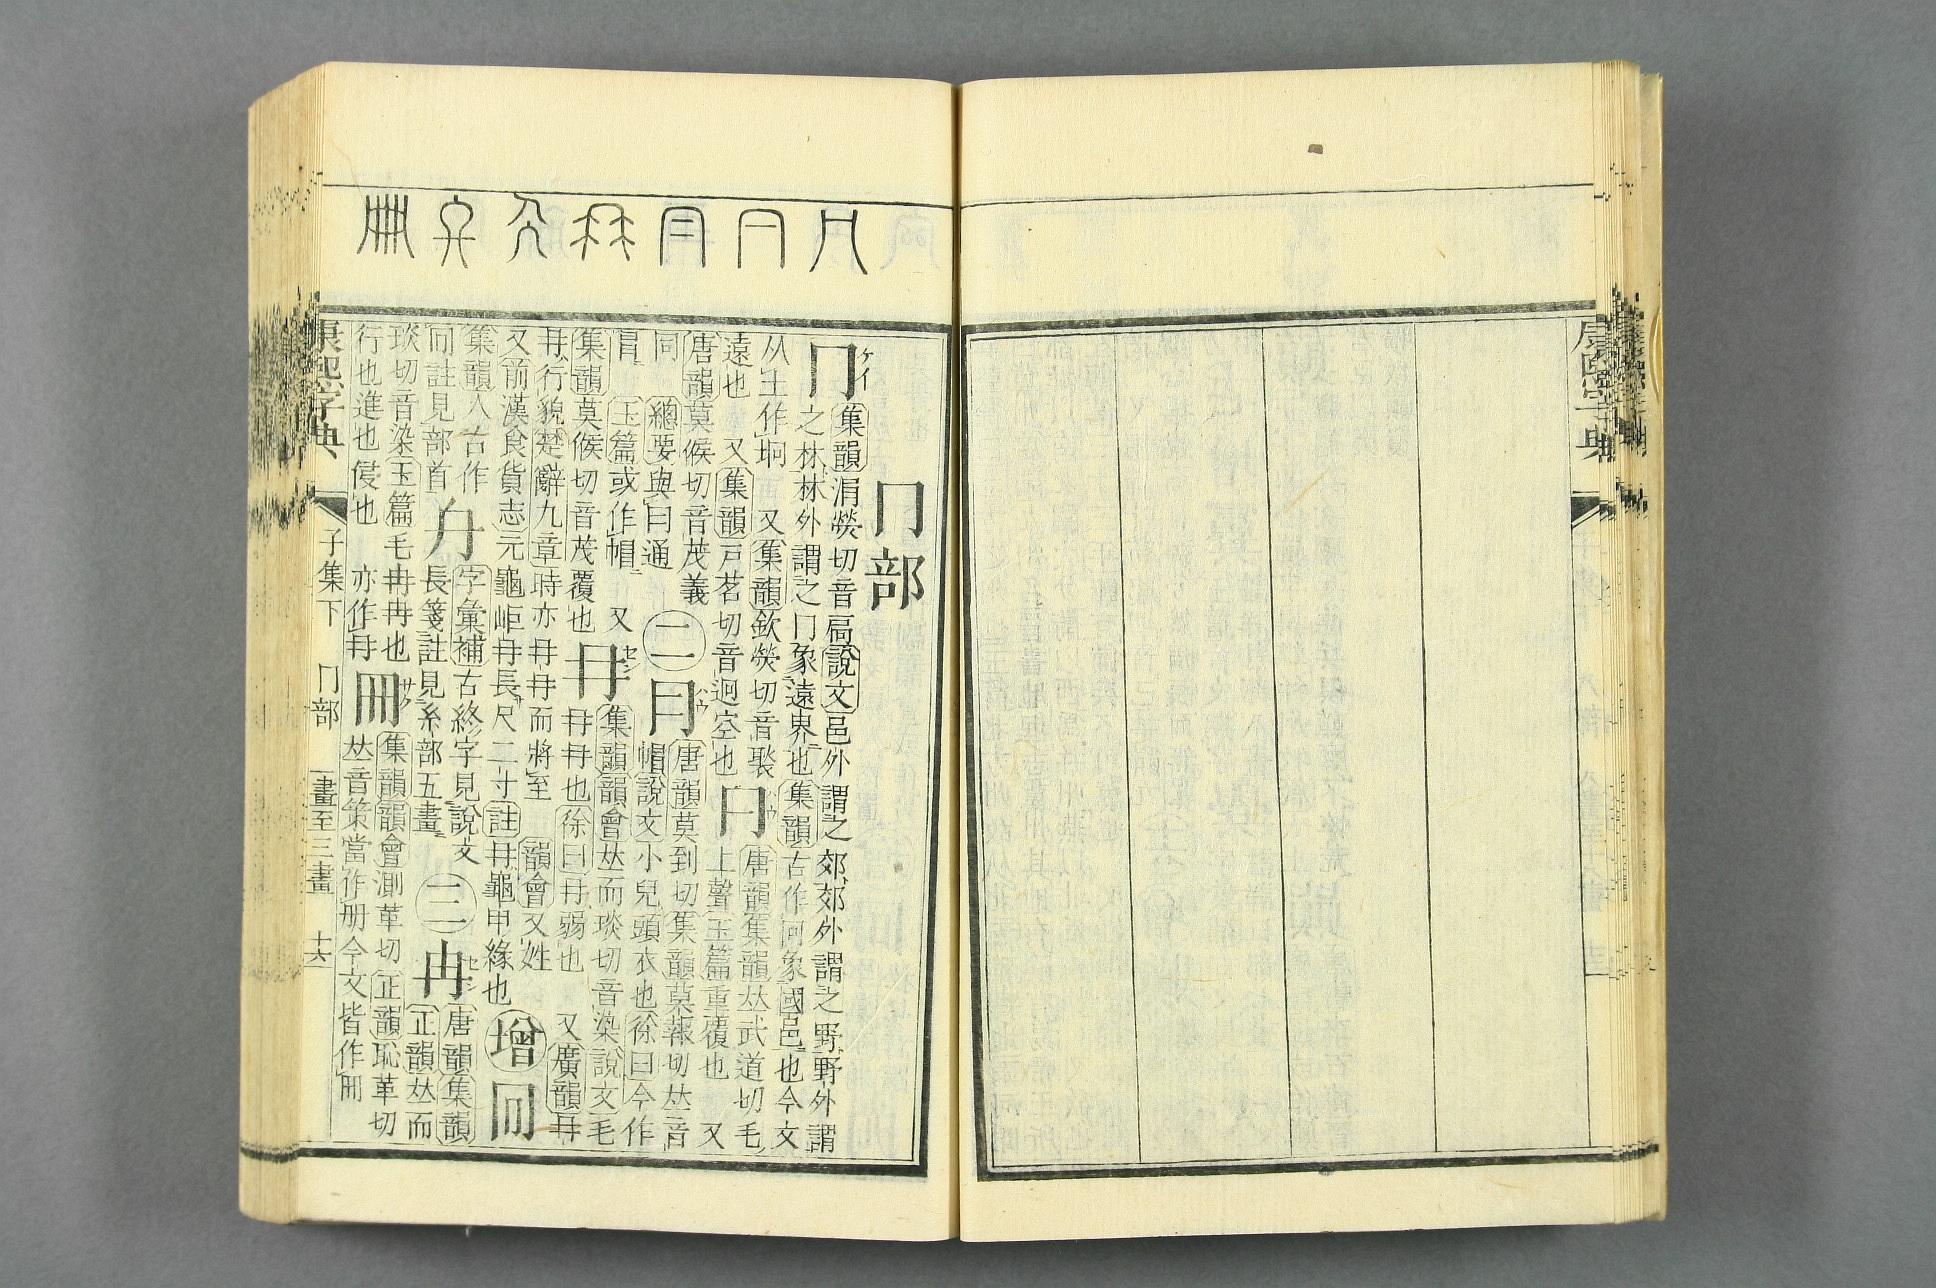 康熙字典
冂部
冂
ケイ
集韻涓熒切音扃說文邑外謂之郊郊外謂之野野外謂
之林林外謂之冂象遠界也集韻古作冋象國邑也今文
从土作坰又集韻欽熒切音褧
遠也又集韻戸茗切音迥空也
𠔼
唐韻集韻𠀤武道切毛
上聲玉篇重覆也又
唐韻莫候切音茂義
同總要與冃通
二
冃
唐韻莫到切集韻莫報切𠀤音
帽說文小兒頭衣也徐曰今作
冒玉篇或作帽又
集韻莫候切音茂覆也
冄
集韻韻會𠀤而琰切音染說文毛
冄冄也徐曰冄弱也又廣韻冄
冄行貌楚辭九章時亦冄冄而將至韻會又姓
又前漢食貨志元龜岠冄長尺二寸註冄龜甲緣也
增
冋
集韻人古作
冋註見部首
字彙補古終字見說文
長箋註見糸部五畫
三
冉
唐韻集韻
正韻𠀤而
琰切音染玉篇毛冉冉也
行也進也侵也亦作冄
冊
集韻韻會測革切正韻恥革切
𠀤音策當作册今文皆作冊
康熙字典 子集下 冂部 一畫至三畫 十六